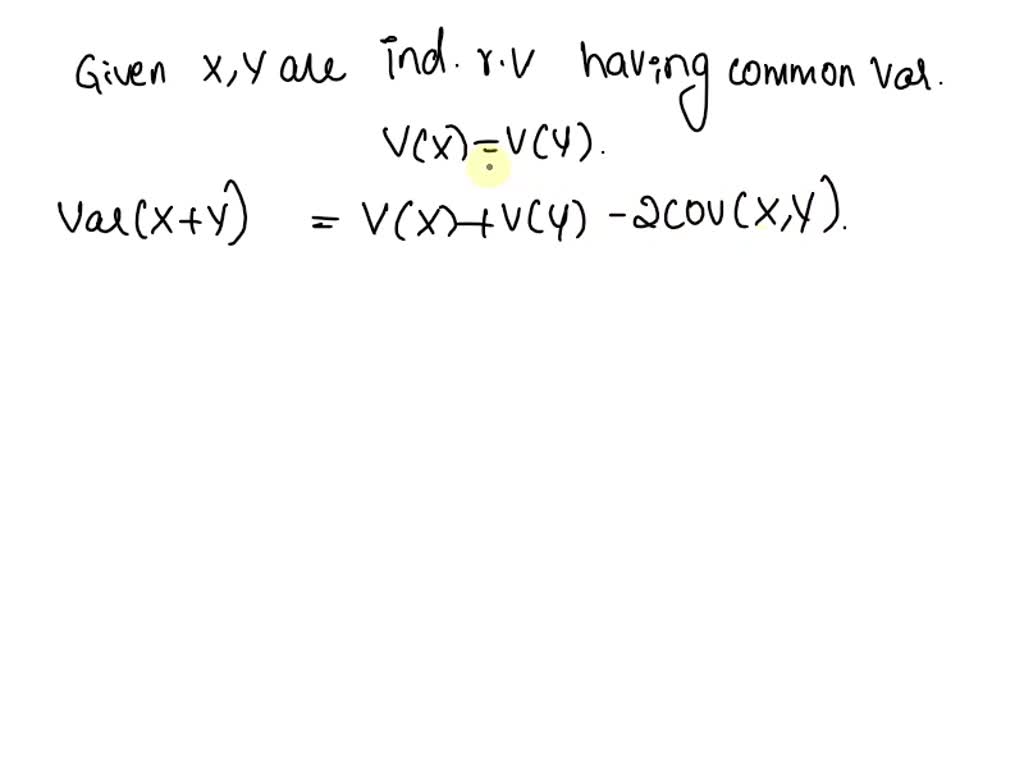 Given X, Y are ind. r.v having common var.
V(X)=V(Y).
Var(X+Y) = V(X)+V(Y) -2COV(X,Y).